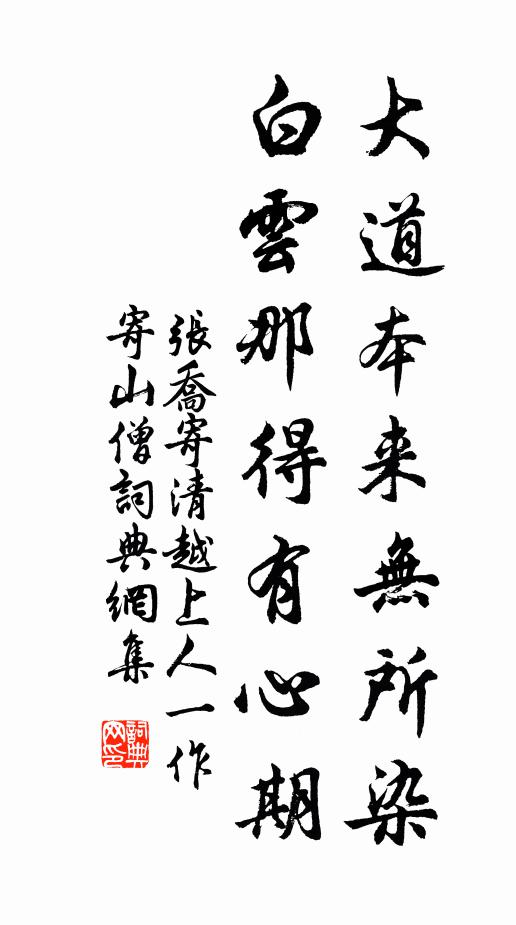 大道本来無所染
白雲那得有心期
張喬寄清越上人一作
寄山僧詞典網集
詞典
网印